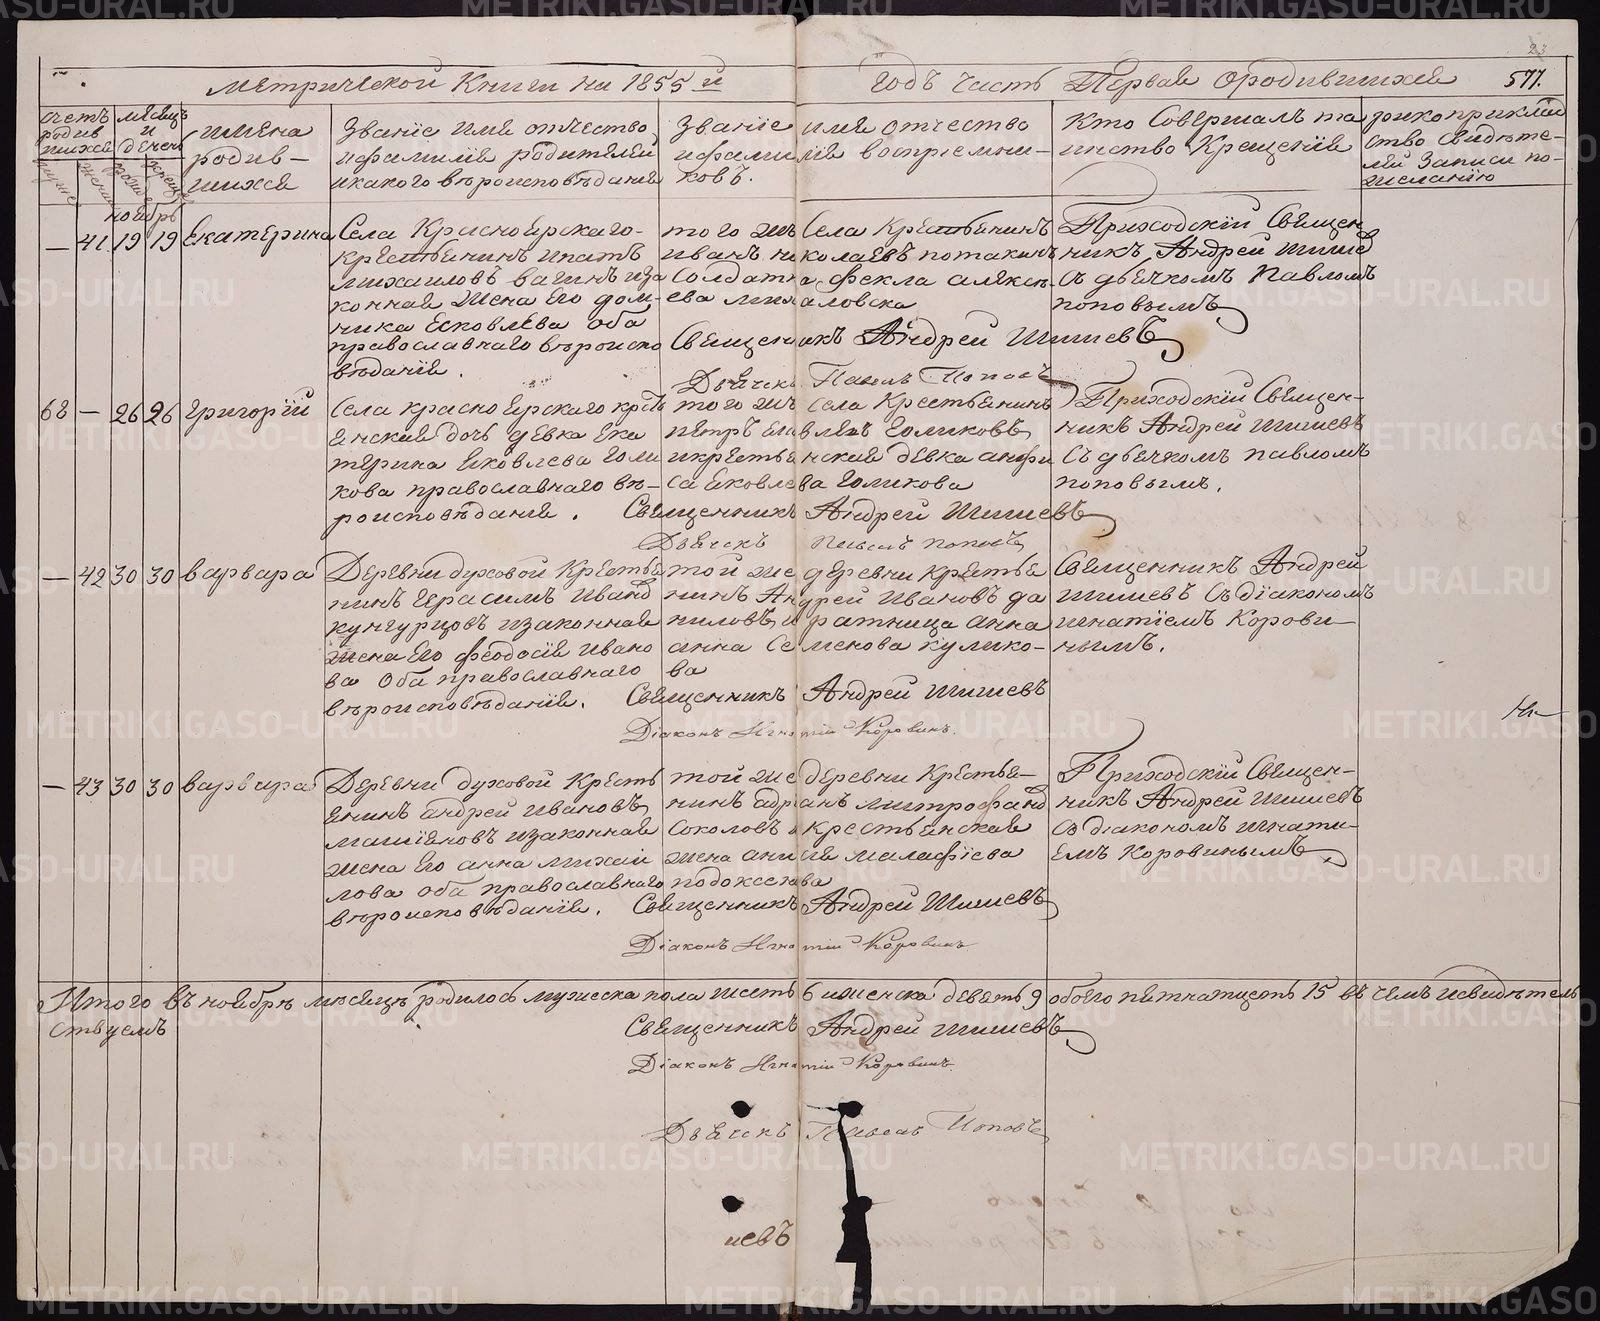 23
Метрической Книги на 1855й годъ часть Первая о родившихся 577.
счетъ родившихся
мѣсяцъ и день
имена родив-
шихся
Званіе имя отчество
и фамилія родителей
и какого вѣроисповѣданія
Званіе имя отчество
и фамилія воспріемни-
ковъ.
Кто Совершалъ та
инство Крещенія
рукоприклад
ство Свидѣте-
лей записи по-
желанію
ноябрь
— 41 19 19 Екатерина
Села Красноярскаго-
крестьянинъ Ипатъ
Михаиловъ Вагинъ иза
конная жена его Дом-
ника Яковлева оба
православнаго вѣроиспо
вѣданія.
того жъ Села Крестьянинъ
Иванъ Николаевъ
Солдатка Фекла Алексѣ-
ева
Приходскій Священ
никъ Андрей Шишев
съ дьячкомъ Павломъ
Поповымъ
Священникъ Андрей Шишевъ
Дьячекъ Павелъ Поповъ
68 — 26 26 Григорій
Села Красноярскаго крестъ
янская дочь девка Ека
терина Яковлева Голи
кова православнаго вѣ-
роисповѣданія.
того жъ Села Крестьянинъ
Петръ Яковлевъ Голиковъ
и крестьянская девка Анфи
са Яковлева Голикова
Приходскій Священ-
никъ Андрей Шишевъ
Съ дьячкомъ Павломъ
Поповымъ.
Священникъ Андрей Шишевъ
Дьячекъ Павелъ Поповъ
— 42 30 30 Варвара
Деревни Духовой Крестья
нинъ Герасимъ Иванов
Кунгурцовъ изаконная
жена его Феодосія Ивано
ва оба православнаго
вѣроисповѣданія.
той же деревни Крестья
нинъ Андрей Ивановъ Да
ниловъ и ратница Анна
Анна Семенова Кулико-
ва
Священникъ Андрей
Шишевъ Съ діакономъ
Игнатіемъ Корови-
нымъ.
Священникъ Андрей Шишевъ
Діаконъ Игнатіи Коровинъ.
— 43 30 30 Варвара
Деревни Духовой Кресть
янинъ Андрей Ивановъ
изаконная
жена его Анна Михаи
лова оба православнаго
вѣроисповѣданія.
той же деревни Крестья-
нинъ Адріанъ Митрофанов
Соколовъ и Крестьянская
жена Анисія Малафіева
Приходскій Священ-
никъ Андрей Шишевъ
съ діакономъ Игнати-
емъ Коровинымъ
Священникъ Андрей Шишевъ
Діаконъ Игнатіи Коровинъ
Итого въ ноябрѣ мѣсяцѣ родилось мужеска пола шесть 6 иженска девять 9 обоего пятнатцеть 15 въ чемъ исвидѣтель
ствуемъ
Священникъ Андрей Шишевъ
Діаконъ Игнатіи Коровинъ
Дьячекъ Павелъ Поповъ
шевъ
METRIKI.GASO-URAL.RU